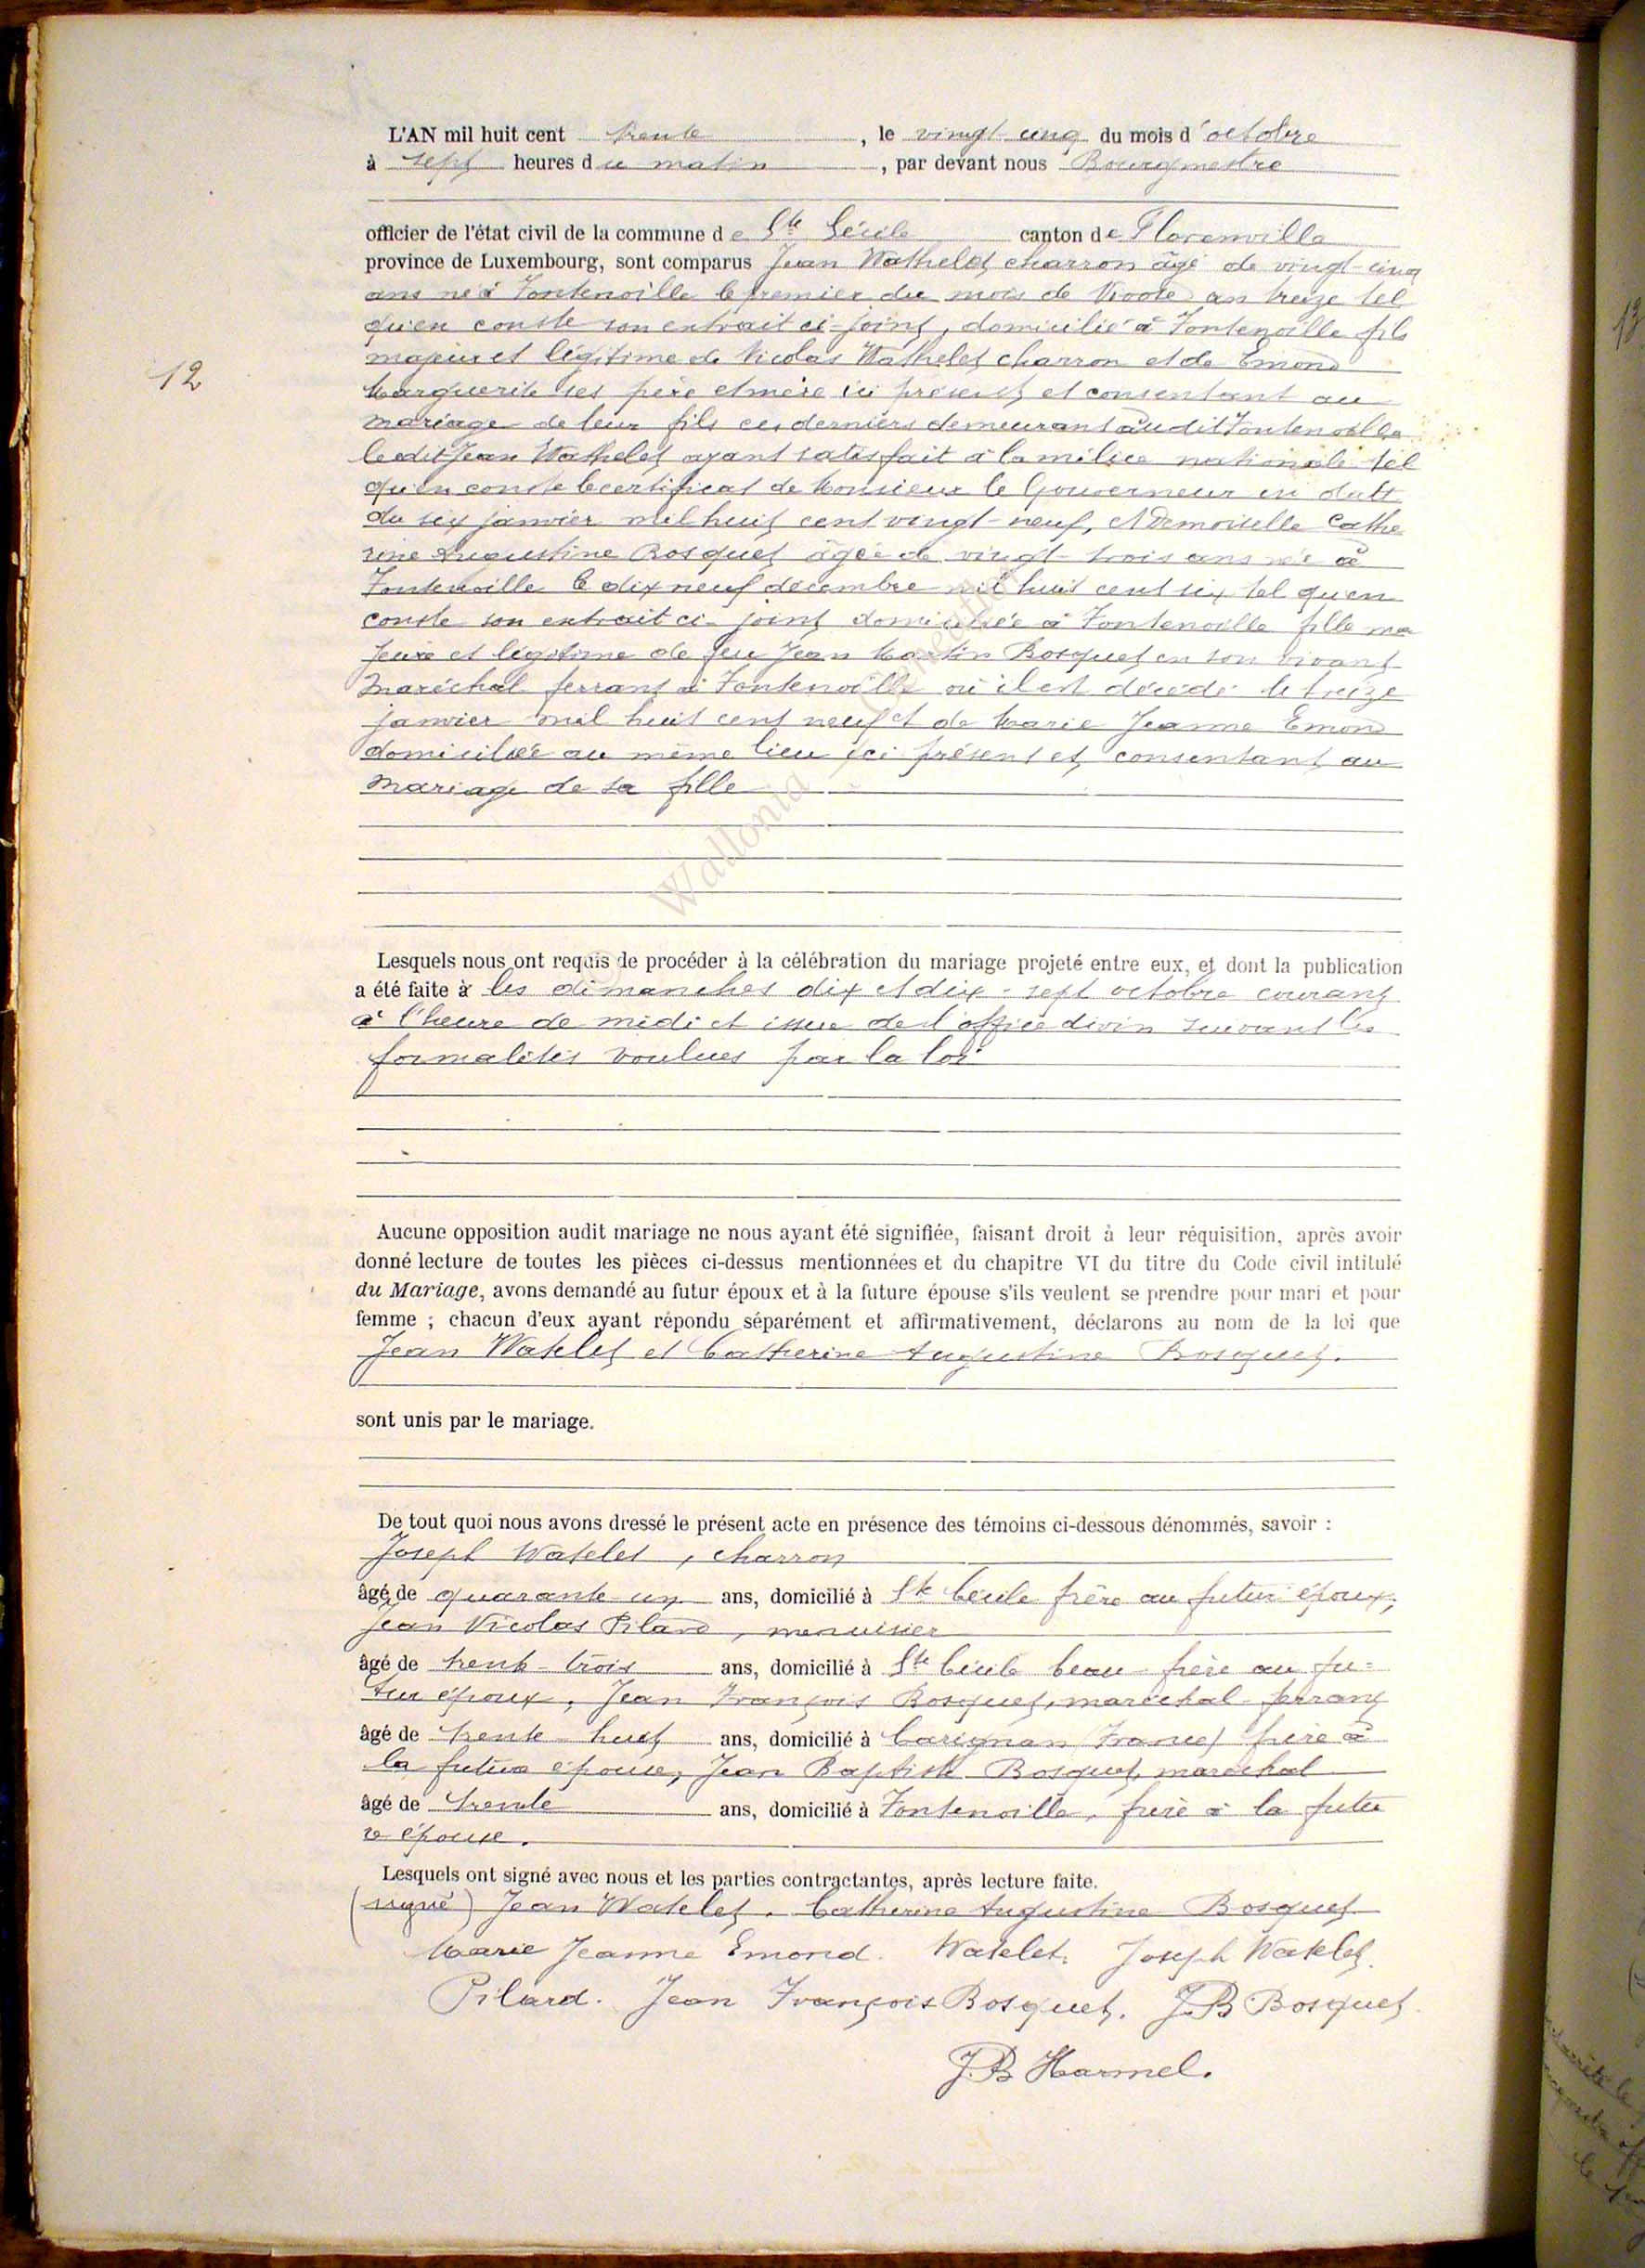 L'AN mil huit cent trente, le vingt cinq du mois d'octobre
à sept heures du matin, par devant nous Bourgmestre
officier de l'état civil de la commune de Ste Cécile canton de Florenville
province de Luxembourg, sont comparus Jean Wathelet charron âgé de vingt-cinq
ans né à Fontenoille le premier du mois de an treize tel
qu'en conste son extrait ci-joint, domicilié à Fontenoille fils
12
majeur et légitime de Nicolas Wathelet charron et de Emond
Marguerite ses père et mère ici présents et consentant au
mariage de leur fils ces derniers demeurant audit Fontenoille
ledit Jean Wathelet ayant satisfait à la milice nationale tel
qu'en conste le certificat de Monsieur le Gouverneur en datte
du six janvier mil huit cent vingt-neuf, et Demoiselle Cathe
rine Augustine Bosquet âgée de vingt-trois ans née à
Fontenoille le dix neuf décembre mil huit cent six tel qu'en
conste son extrait ci-joint domiciliée à Fontenoille fille ma
jeure et légitime de feu Jean Martin Bosquet en son vivant
maréchal ferrant à Fontenoille où il est décédé le treize
janvier mil huit cent neuf et de Marie Jeanne Emond
domiciliée au même lieu ici présent et consentant au
mariage de sa fille
Wallonia
Lesquels nous ont requis de procéder à la célébration du mariage projeté entre eux, et dont la publication
a été faite à les dimanches dix et dix-sept octobre courant
à l'heure de midi et issue de l'office divin suivant les
formalités voulues par la loi
Aucune opposition audit mariage ne nous ayant été signifiée, faisant droit à leur réquisition, après avoir
donné lecture de toutes les pièces ci-dessus mentionnées et du chapitre VI du titre du Code civil intitulé
du Mariage, avons demandé au futur époux et à la future épouse s'ils veulent se prendre pour mari et pour
femme ; chacun d'eux ayant répondu séparément et affirmativement, déclarons au nom de la loi que
Jean Watelet et Catherine Augustine Bosquet.
sont unis par le mariage.
De tout quoi nous avons dressé le présent acte en présence des témoins ci-dessous dénommés, savoir :
Joseph Watelet, charron
âgé de quarante un ans, domicilié à Ste Cécile frère au futur époux,
Jean Nicolas Pilard, menuisier
âgé de trente-trois ans, domicilié à Ste Cécile beau-frère au fu=
tur époux, Jean François Bosquet, maréchal-ferrant
âgé de trente-huit ans, domicilié à Carignan (France) frère à
la future épouse, Jean Baptiste Bosquet, maréchal
âgé de trente ans, domicilié à Fontenoille, frère à la futu
re épouse.
Lesquels ont signé avec nous et les parties contractantes, après lecture faite.
(signé) Jean Watelet. Catherine Augustine Bosquet
Marie Jeanne Emond. Watelet. Joseph Watelet.
Pilard. Jean François Bosquet. JB Bosquet.
J.B Harmel.